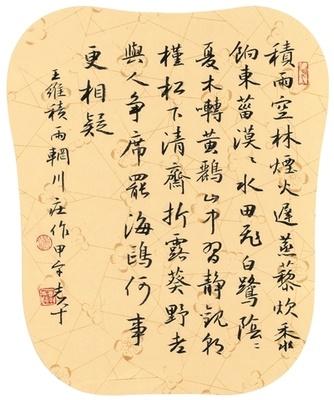 積雨空林煙火遲蒸藜炊黍
餉東菑漠〻水田飛白鷺陰〻
夏木囀黃鸝山中習靜觀朝
槿松下清齋折露葵野老
與人爭席罷海鷗何事
更相疑
王維積雨輞川莊作甲午